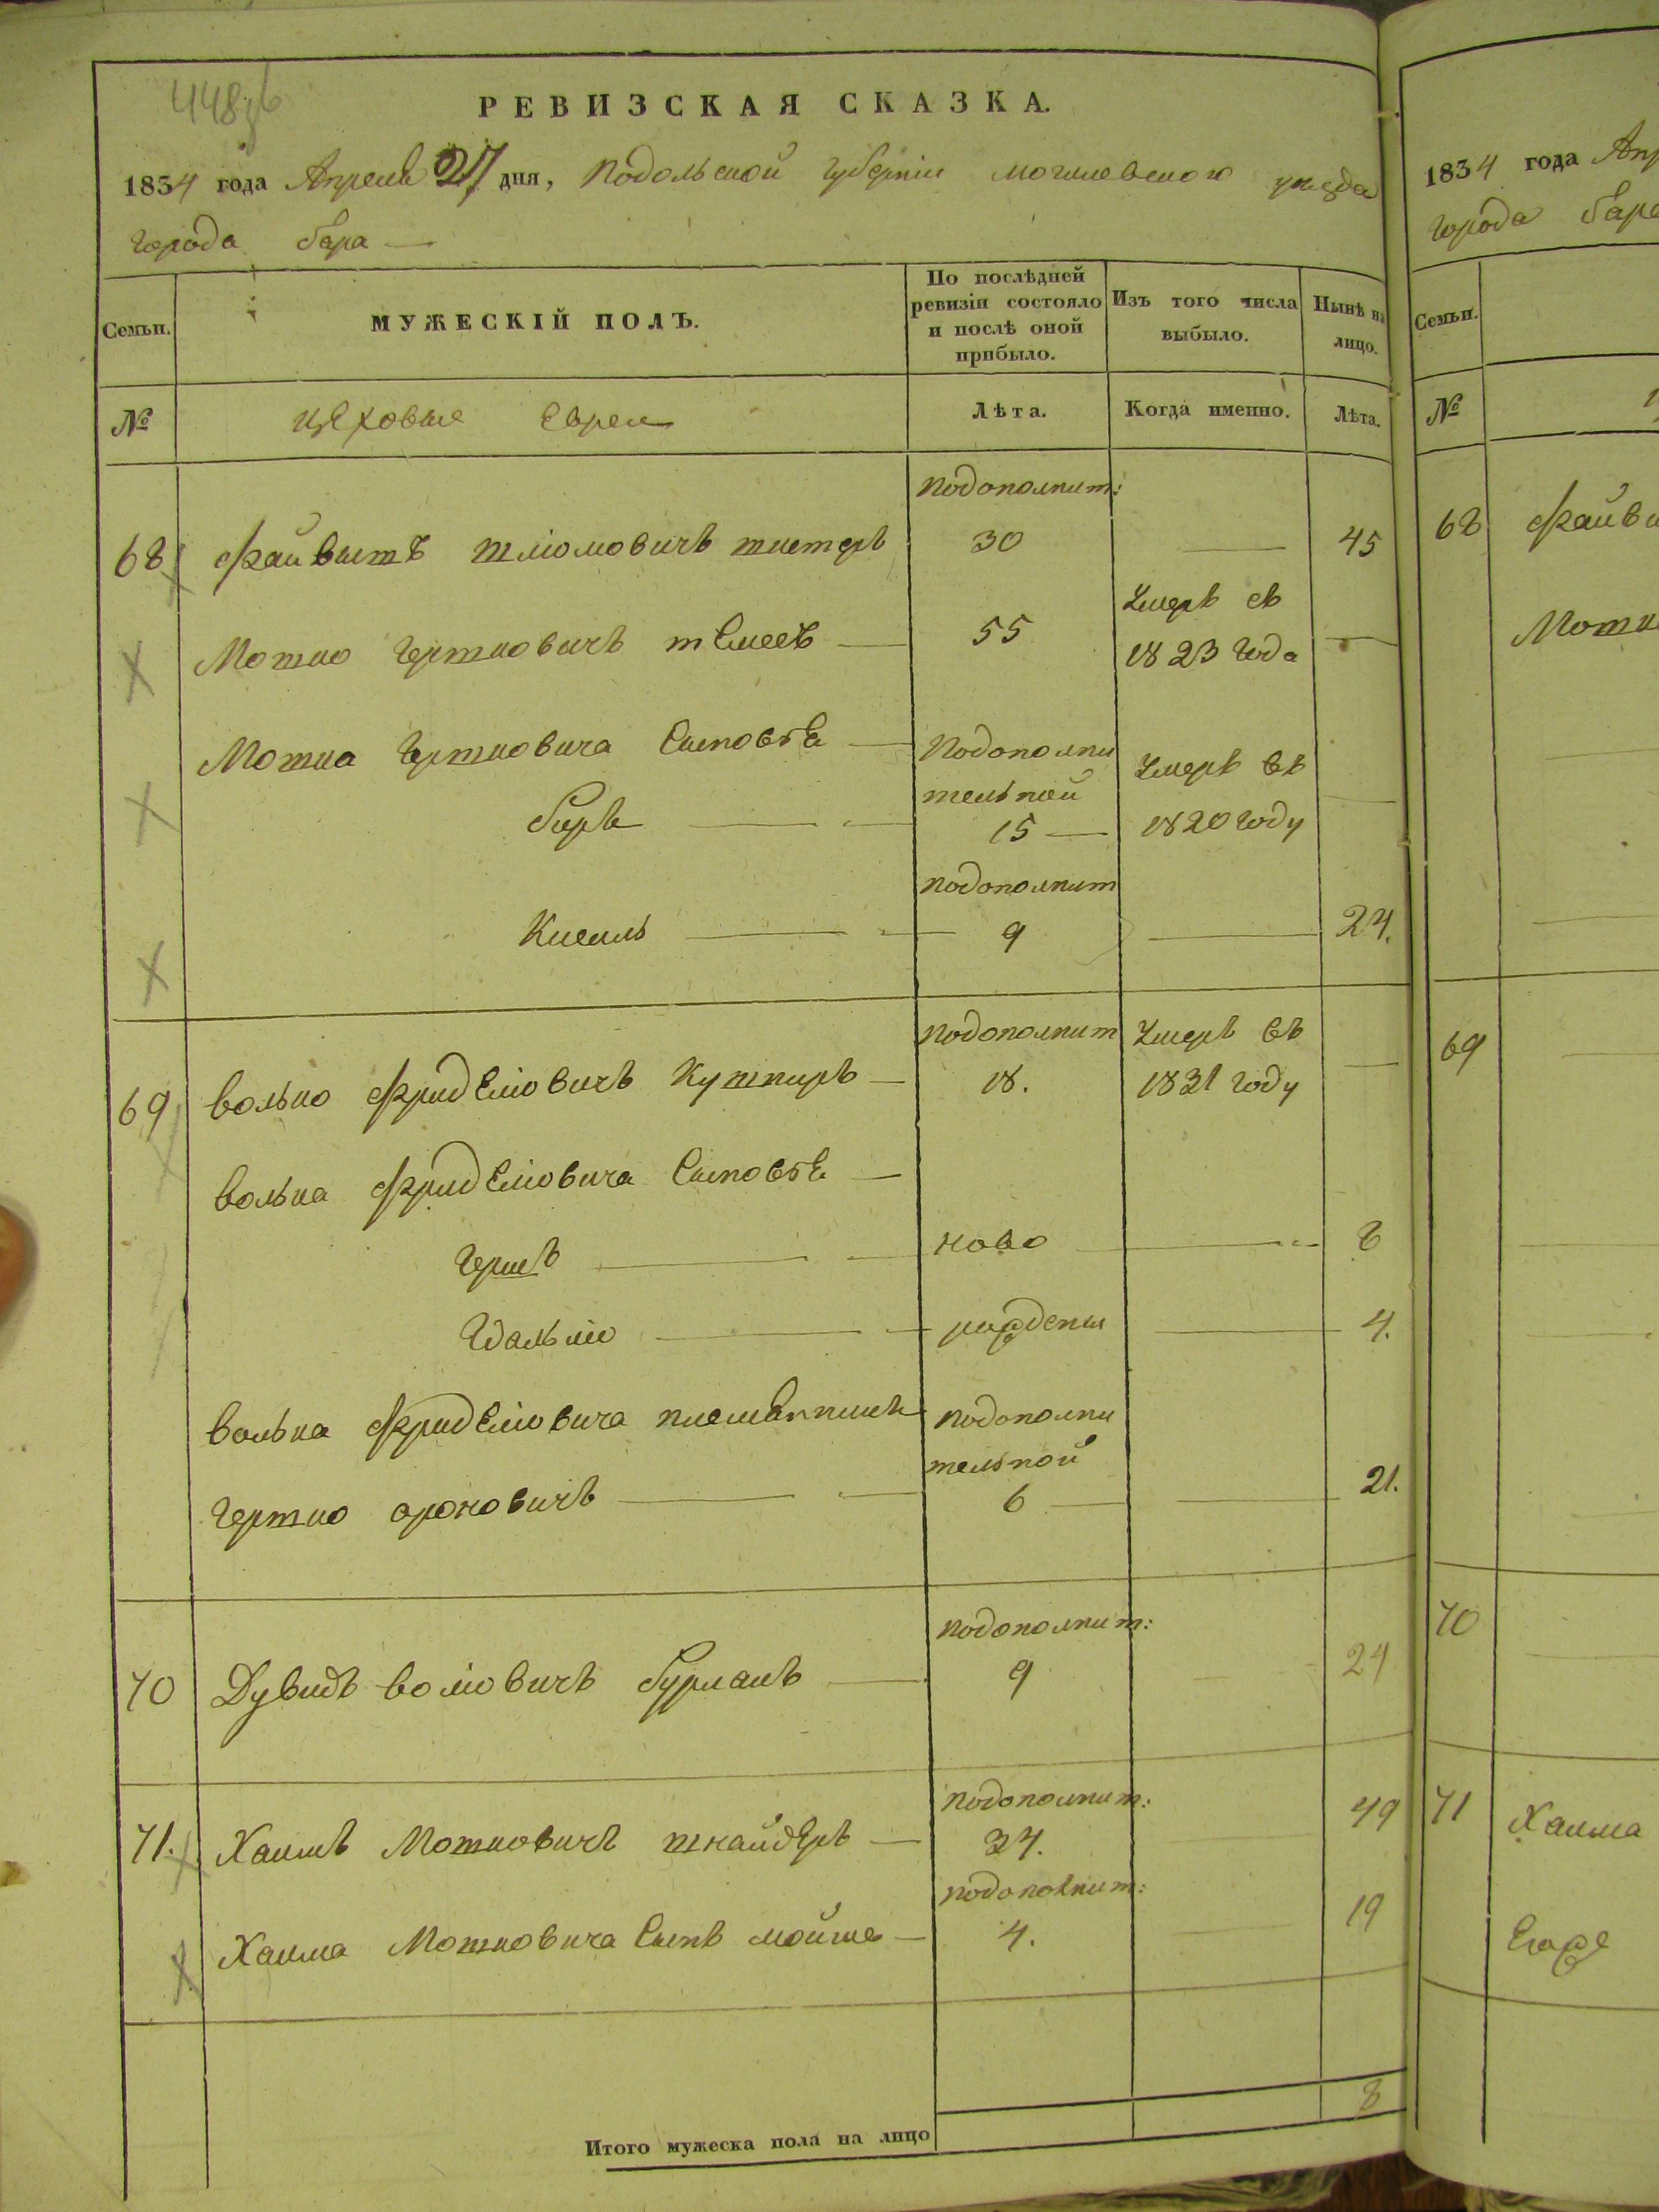 448 зв
РЕВИЗСКАЯ СКАЗКА.
1834 года Апреля 27 дня, Подольской губернии могилевского уезда
города бара —
Семьи.
МУЖЕСКІЙ ПОЛЪ.
По послѣдней ревизіи состояло и послѣ оной прибыло.
Изъ того числа выбыло.
Нынѣ на лицо.
№
цеховые Евреи
Лѣта.
Когда именно.
Лѣта.
подополнит:
68 Файвишъ шліомовичъ 30 — 45
Умеръ въ
Мошко Гершковичъ — 55 1823 года —
Мошка Гершковича Сыновья — Подополни
тельной Умеръ въ
беръ — 15 — 1820 году
подополнит
Кисиль — 9 — 24.
подополнит Умеръ въ
69 волько Фридліовичъ Кушниръ — 18. 1831 году —
волька Фридліовича Сыновья —
Гершъ — ново — 8
Идальлю — рождены — 4.
волька Фридліовича племянникъ подополни
тельной
Гершко ароновичъ — 6 — 21.
подополнит:
70 Дувидъ воліовичъ бурманъ — 9 24
подополнит:
71. Хаимъ Мошковичъ шнайдеръ — 34. 49
подополнит:
Хаима Мошковича Сынъ мойше — 4. 19
Итого мужеска пола на лицо 8
1834 года Апр
города бара
Семьи.
№
68 Файви
Мошк
69
70
71 Хаима